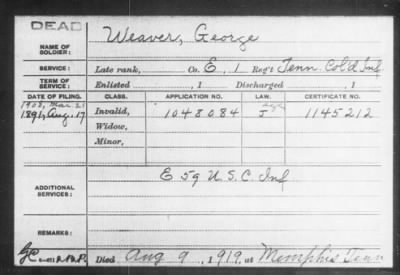 DEAD
NAME OF SOLDIER: Weaver, George
SERVICE: Late rank, Co. E, 1 Reg't Tenn. Col'd Inf
TERM OF SERVICE: Enlisted , 1 Discharged , 1
DATE OF FILING. CLASS. APPLICATION NO. LAW. CERTIFICATE NO.
1908, Mar. 21 Age
1891, Aug. 17 Invalid, 1048084 J 1145212
Widow,
Minor,
ADDITIONAL SERVICES: E 59 U.S.C. Inf
REMARKS:
Died Aug 9, 1919, at Memphis Tenn